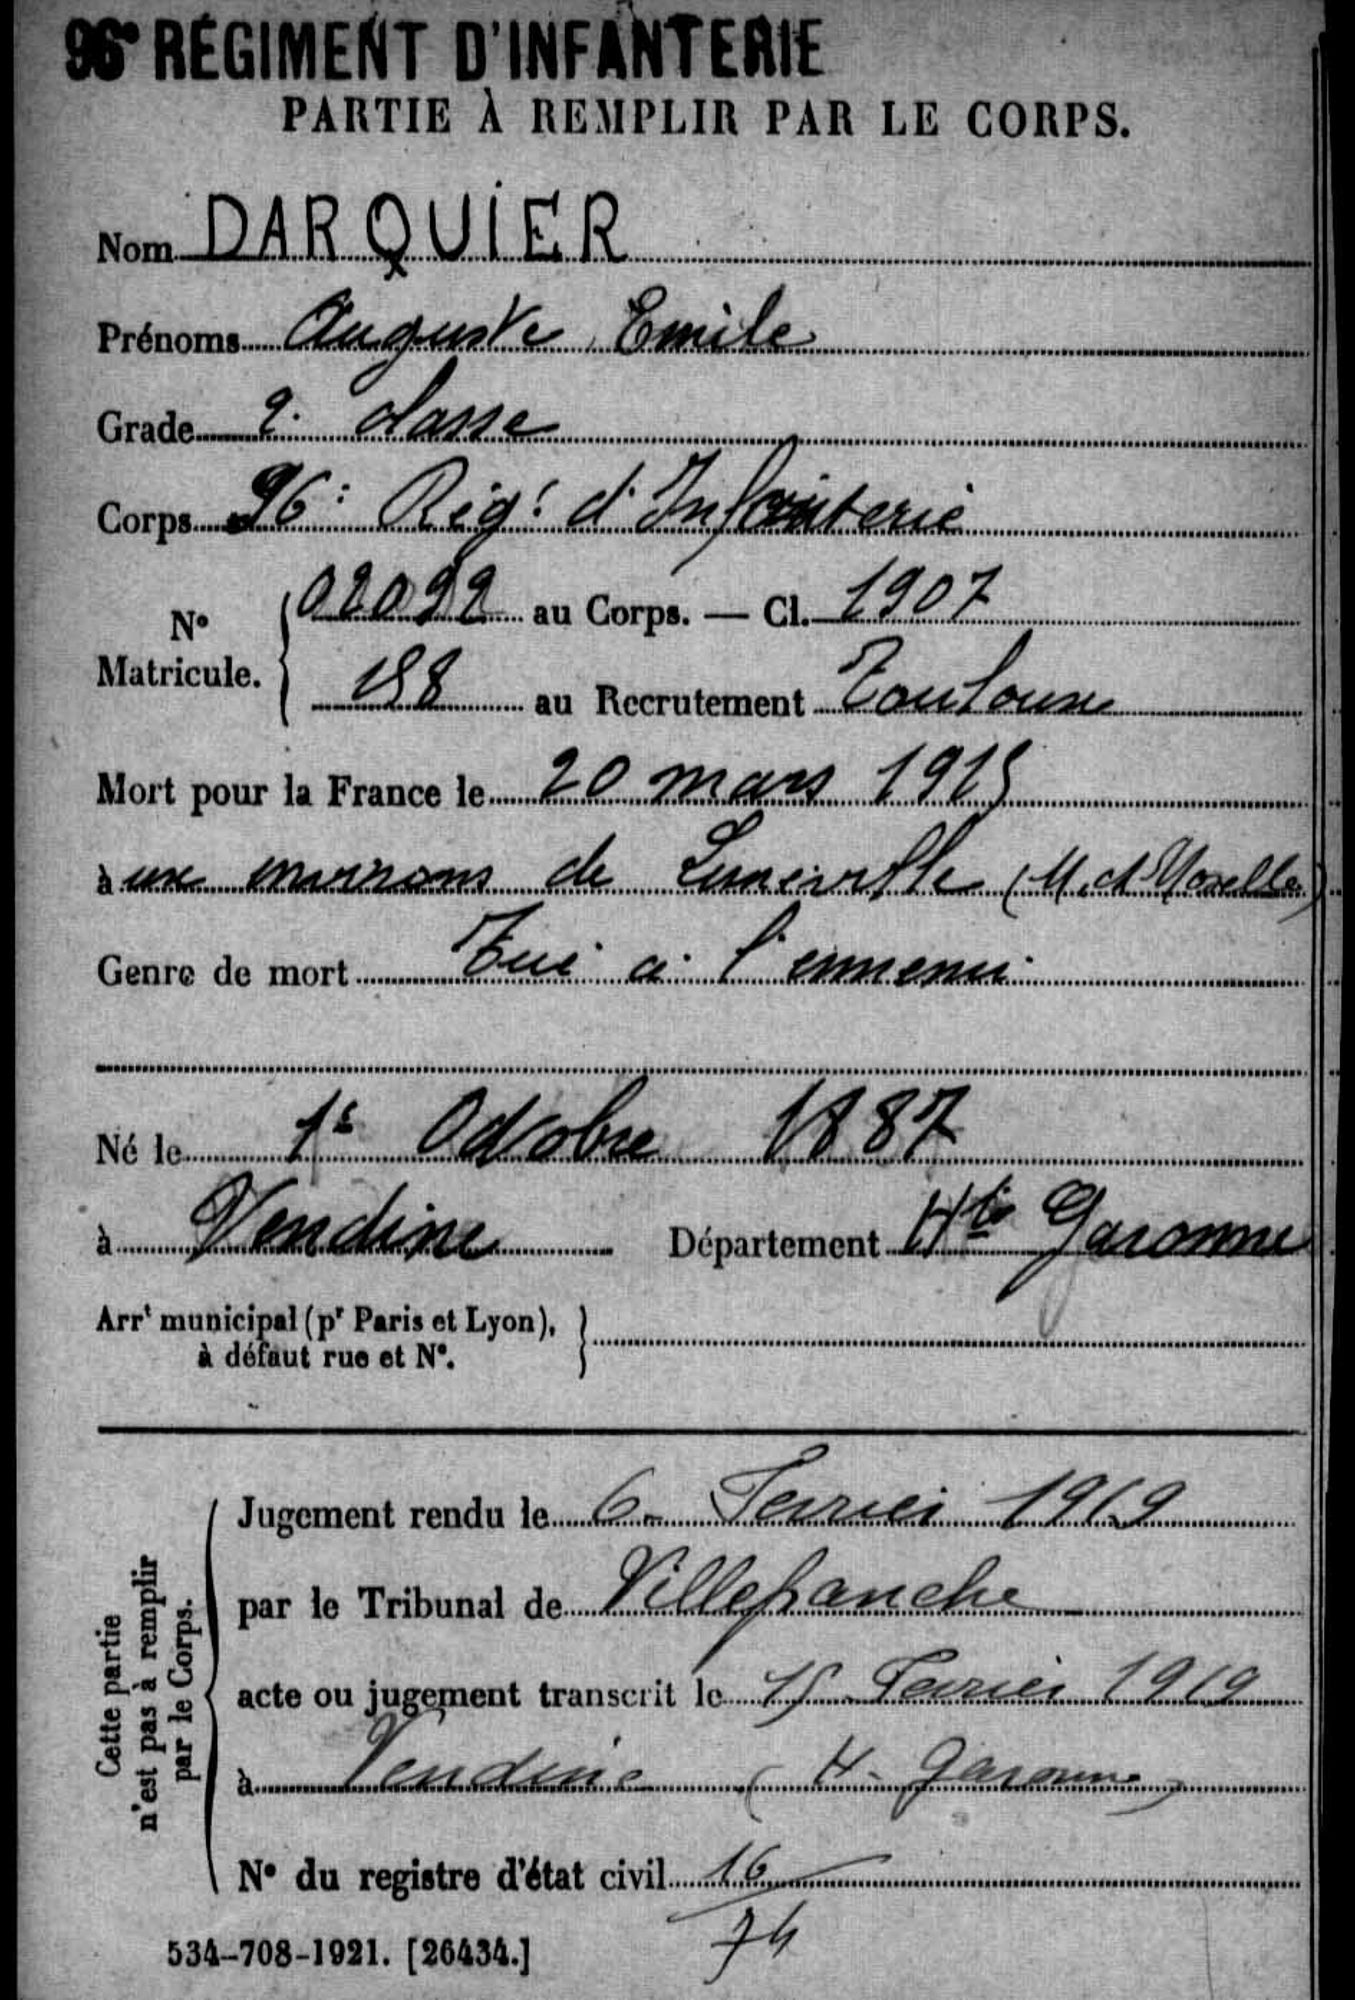 96e RÉGIMENT D'INFANTERIE
PARTIE À REMPLIR PAR LE CORPS.
Nom DARQUIER
Prénoms Auguste Emile
Grade 2e classe
Corps 96e Régt d'Infanterie
No Matricule. 02092 au Corps. — Cl. 1907
198 au Recrutement Toulouse
Mort pour la France le 20 mars 1915
à ux environs de Luneville (M. et Moselle)
Genre de mort Tué à l'ennemi
Né le 1er Octobre 1887
à Vendine Département Hte Garonne
Arrt municipal (pr Paris et Lyon),
à défaut rue et No.
Cette partie
n'est pas à remplir
par le Corps.
Jugement rendu le 6 Fevrier 1919
par le Tribunal de Villefranche
acte ou jugement transcrit le 15 Fevrier 1919
à Vendine (H. Garonne)
No du registre d'état civil 16
74
534-708-1921. [26434.]